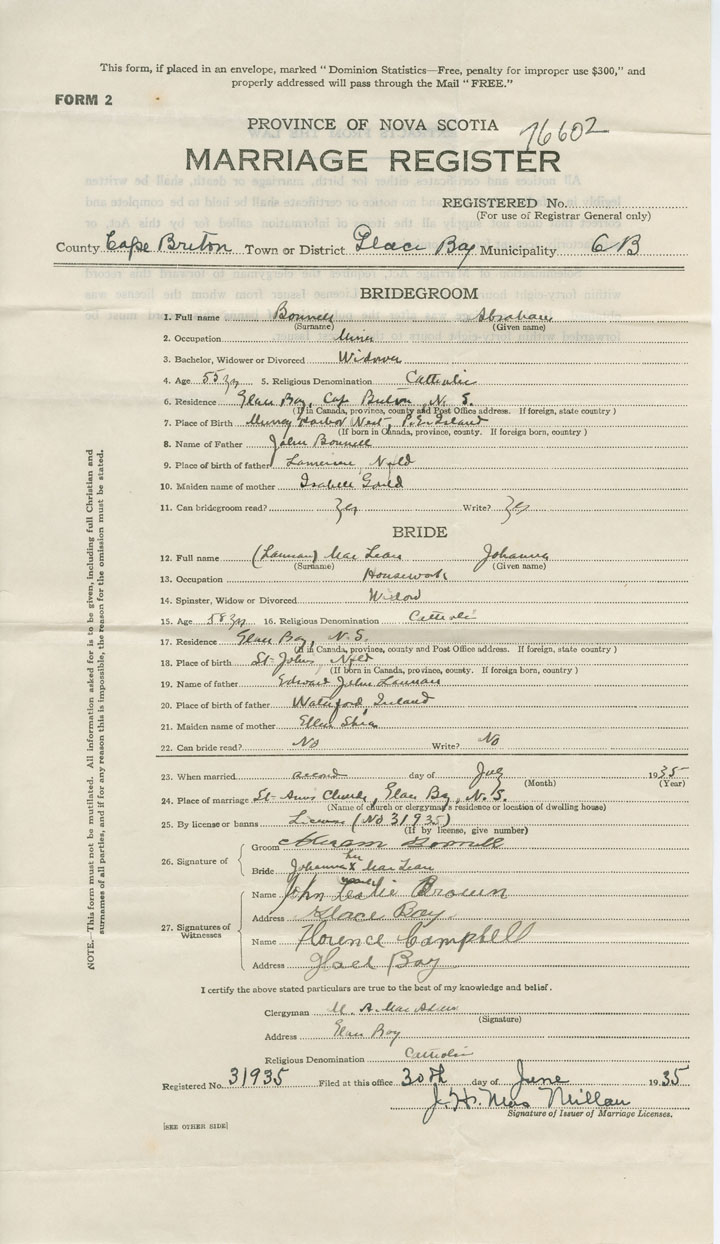 This form, if placed in an envelope, marked "Dominion Statistics—Free, penalty for improper use $300," and
properly addressed will pass through the Mail "FREE."
FORM 2
PROVINCE OF NOVA SCOTIA 76602
MARRIAGE REGISTER
REGISTERED No.
(For use of Registrar General only)
County Cape Breton Town or District Glace Bay Municipality C B
BRIDEGROOM
1. Full name Bonnell Abraham
(Surname) (Given name)
2. Occupation Miner
3. Bachelor, Widower or Divorced Widower
4. Age 55 yrs 5. Religious Denomination Catholic
6. Residence Glace Bay, Cape Breton, N. S.
(If in Canada, province, county and Post Office address. If foreign, state country)
7. Place of Birth Murray Harbor West, P. E. Island
(If born in Canada, province, county. If foreign born, country)
8. Name of Father John Bonnell
9. Place of birth of father Nfld
10. Maiden name of mother Isabell Gould
11. Can bridegroom read? Yes Write? Yes
BRIDE
12. Full name (Lannan) MacLean Johanna
(Surname) (Given name)
13. Occupation Housework
14. Spinster, Widow or Divorced Widow
15. Age 58 yrs 16. Religious Denomination Catholic
17. Residence Glace Bay, N. S.
(If in Canada, province, county and Post Office address. If foreign, state country)
18. Place of birth St. Johns, Nfld
(If born in Canada, province, county. If foreign born, country)
19. Name of father Edward John Lannan
20. Place of birth of father Waterford, Ireland
21. Maiden name of mother Ellen Shea
22. Can bride read? No Write? No
23. When married second day of July 1935
(Month) (Year)
24. Place of marriage St. Anns Church, Glace Bay, N. S.
(Name of church or clergyman's residence or location of dwelling house)
25. By license or banns License (No 31935)
(If by license, give number)
26. Signature of Groom Abraham Bonnell
her
Bride Johanna X MacLean
mark
27. Signatures of Witnesses
Name John Leslie Brown
Address Glace Bay
Name Florence Campbell
Address Glace Bay
I certify the above stated particulars are true to the best of my knowledge and belief.
Clergyman M. A. MacAdam
(Signature)
Address Glace Bay
Religious Denomination Catholic
Registered No. 31935 Filed at this office 30th day of June 1935
J. H. MacMillan
Signature of Issuer of Marriage Licenses.
[SEE OTHER SIDE]
NOTE.—This form must not be mutilated. All information asked for is to be given, including full Christian and
surnames of all parties, and if for any reason this is impossible, the reason for the omission must be stated.